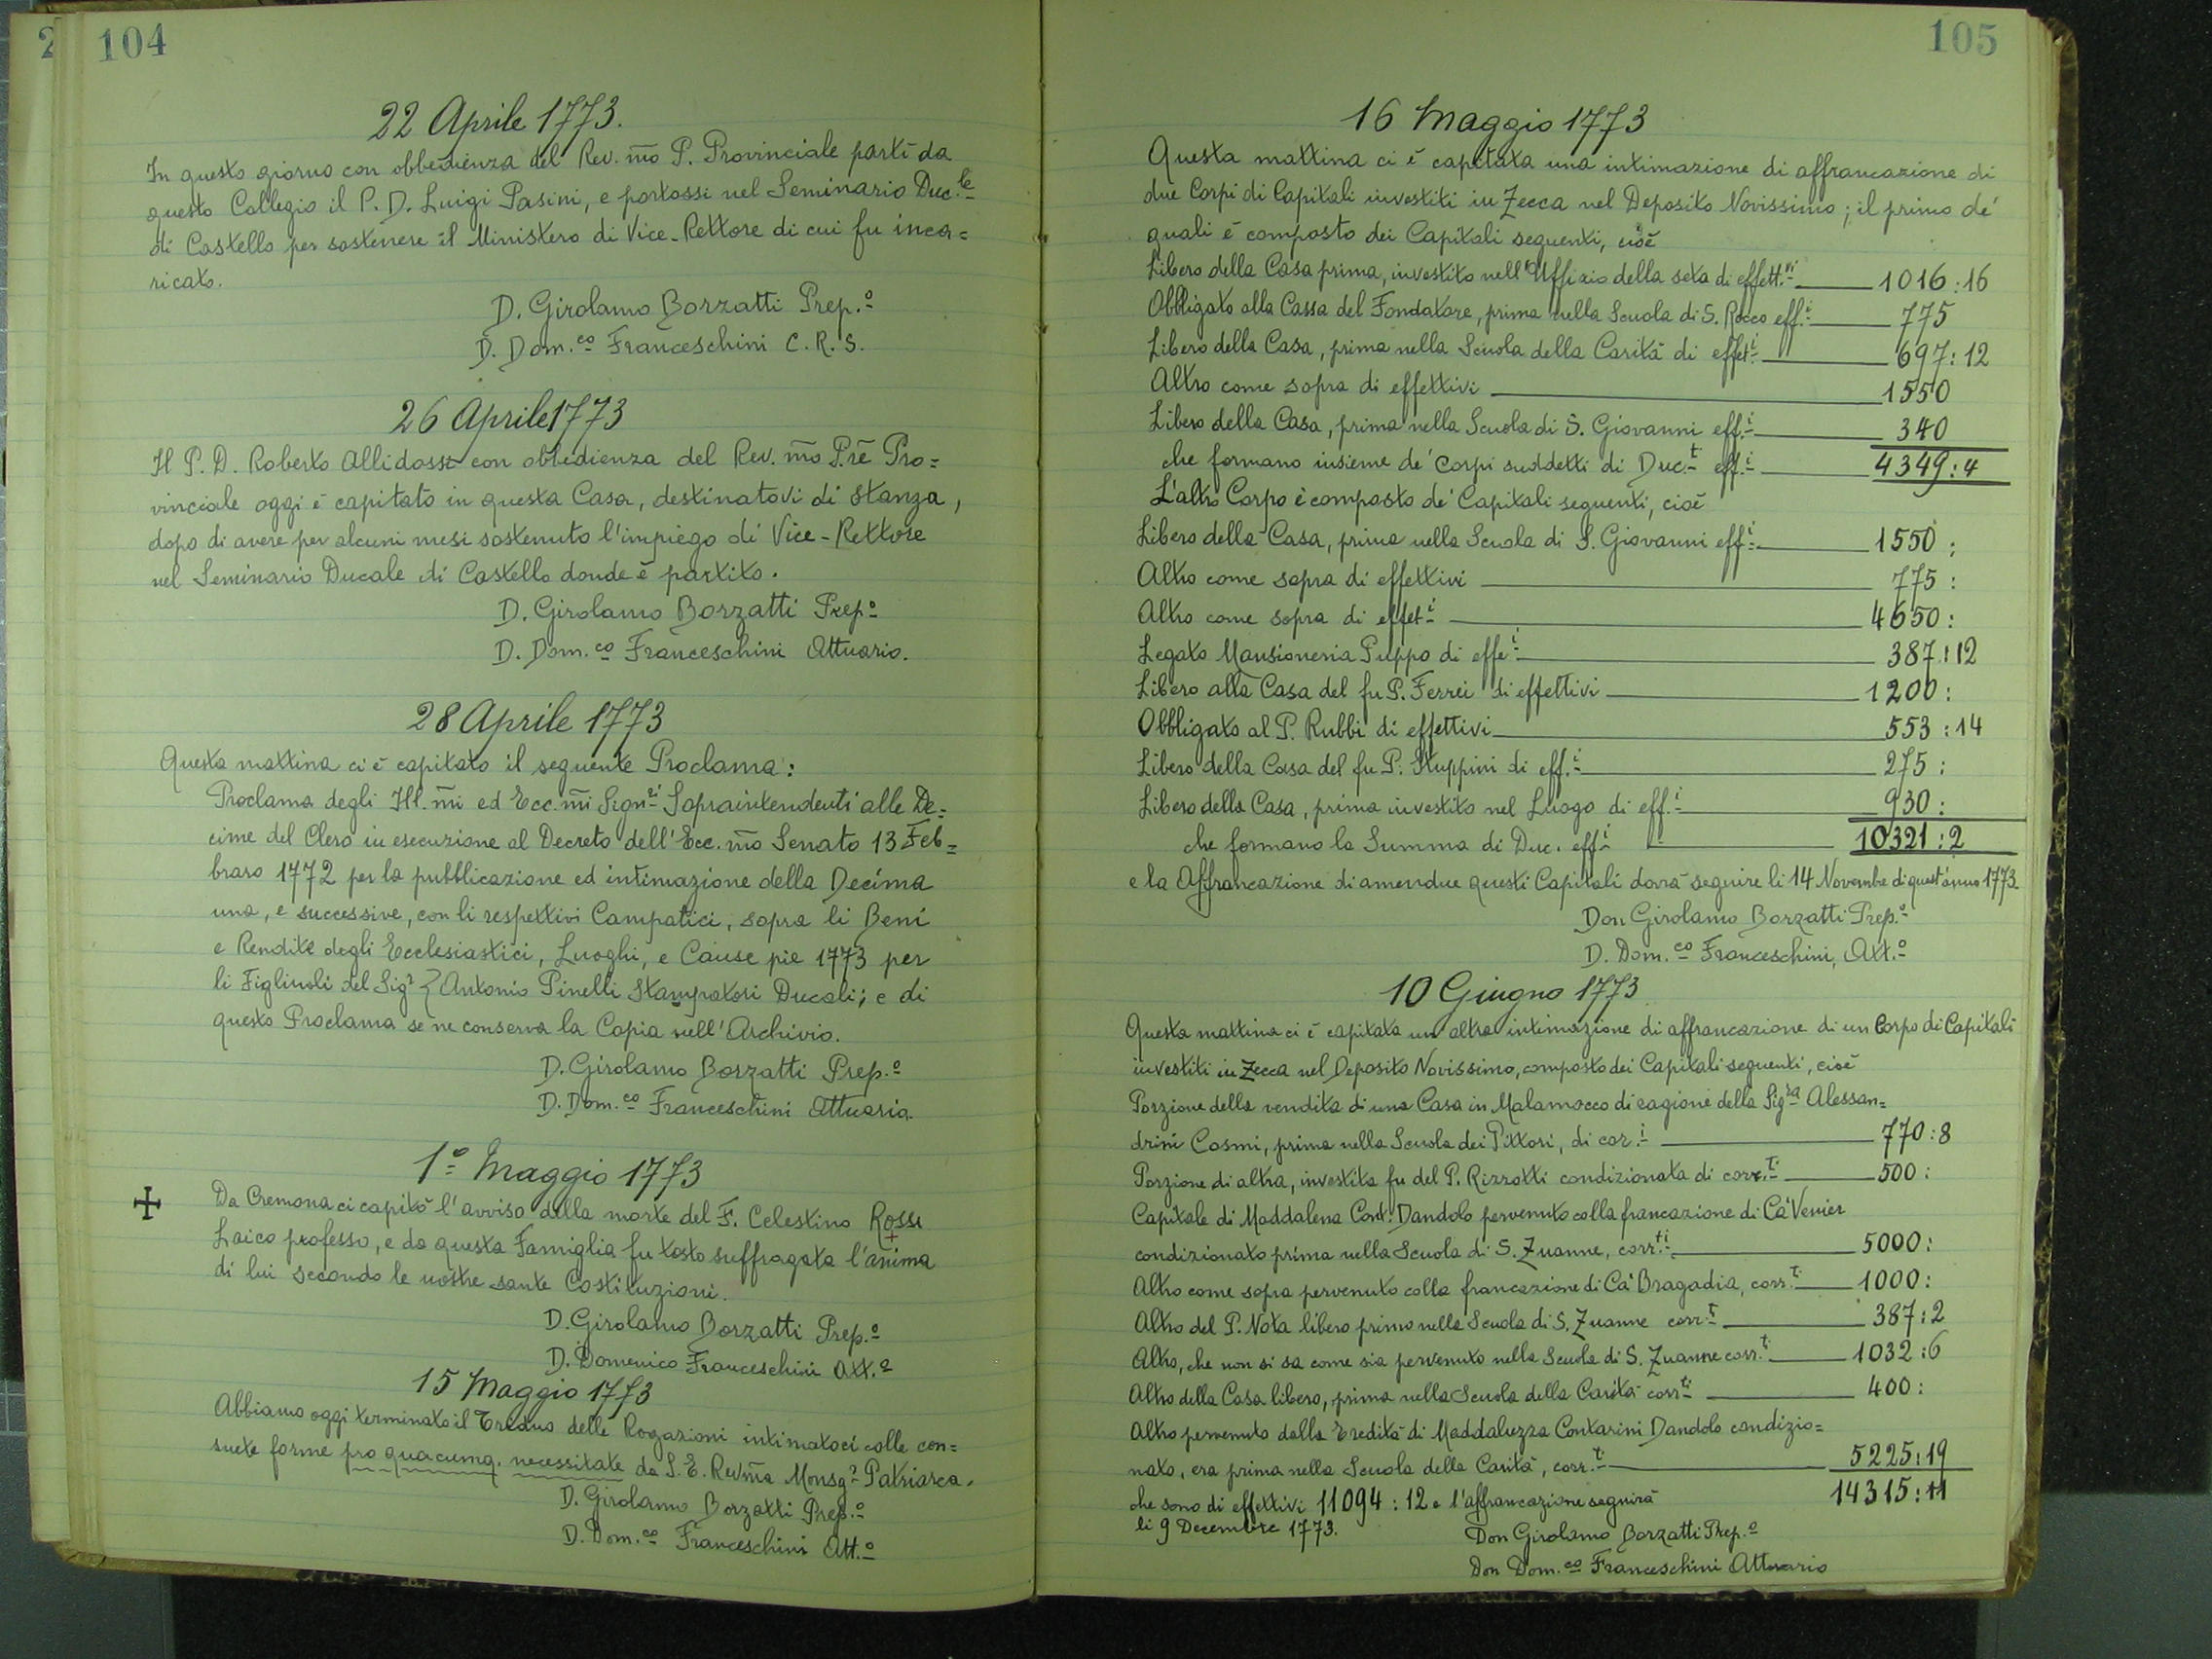 2
104
22 Aprile 1773.
In questo giorno con obbedienza del Rev. m̄o P. Provinciale partì da
questo Collegio il P. D. Luigi Pasini, e portossi nel Seminario Duc.le
di Castello per sostenere il Ministero di Vice-Rettore di cui fu inca=
ricato.
D. Girolamo Borzatti Prep.o
D. Dom.co Franceschini C. R. S.
26 Aprile 1773
Il P. D. Roberto Allidossi con obbedienza del Rev. m̄o P.rē Pro=
vinciale oggi è capitato in questa Casa, destinatovi di stanza,
dopo di avere per alcuni mesi sostenuto l'impiego di Vice-Rettore
nel Seminario Ducale di Castello donde è partito.
D. Girolamo Borzatti Prep.o
D. Dom.co Franceschini Attuario.
28 Aprile 1773
Questa mattina ci è capitato il seguente Proclama:
Proclama degli Ill. m̄i ed Ecc. m̄i Sign.ri Sopraintendenti alle De=
cime del Clero in esecuzione al Decreto dell'Ecc. m̄o Senato 13 Feb=
braro 1772 per la pubblicazione ed intimazione della Decima
una, e successive, con li respettivi Campatici, sopra li Beni
e Rendite degli Ecclesiastici, Luoghi, e Cause pie 1773 per
li Figliuoli del Sig.r Z Antonio Pinelli Stampatori Ducali; e di
questo Proclama se ne conserva la Copia nell'Archivio.
D. Girolamo Borzatti Prep.o
D. Dom.co Franceschini Attuario.
1o Maggio 1773
Da Cremona ci capitò l'avviso della morte del F. Celestino Rossi
Laico professo, e da questa Famiglia fu tosto suffragata l'anima
di lui secondo le nostre sante Costituzioni.
D. Girolamo Borzatti Prep.o
D. Domenico Franceschini Att.o
15 Maggio 1773
Abbiamo oggi terminato il Triduo delle Rogazioni intimatoci colle con=
suete forme pro quacumq. necessitate da S. E. Rev.m̄a Monsg.r Patriarca.
D. Girolamo Borzatti Prep.o
D. Dom.co Franceschini Att.o
105
16 Maggio 1773
Questa mattina ci è capitata una intimazione di affrancazione di
due Corpi di Capitali investiti in Zecca nel Deposito Novissimo; il primo de'
quali è composto dei Capitali seguenti, cioè
Libero della Casa prima, investito nell'Uffizio della seta di effett.vi 1016:16
Obbligato alla Cassa del Fondatore, prima nella Scuola di S. Rocco eff.i 775
Libero della Casa, prima nella Scuola della Carità di effet.i 697:12
Altro come sopra di effettivi 1550
Libero della Casa, prima nella Scuola di S. Giovanni eff.i 340
che formano insieme de' Corpi suddetti di Duc.t eff.i 4349:4
L'altro Corpo è composto de' Capitali seguenti, cioè
Libero della Casa, prima nella Scuola di S. Giovanni eff.i 1550:
Altro come sopra di effettivi 775:
Altro come sopra di effet.i 4650:
Legato Mansioneria Puppo di effe.i 387:12
Libero alla Casa del fu P. Ferrei di effettivi 1200:
Obbligato al P. Rubbi di effettivi 553:14
Libero della Casa del fu P. Stuppini di eff.i 275:
Libero della Casa, prima investito nel Luogo di eff.i 930:
che formano la Summa di Duc. eff.i 10321:2
e la Affrancazione di amendue questi Capitali dovrà seguire li 14 Novembre di quest'anno 1773
Don Girolamo Borzatti Prep.o
D. Dom.co Franceschini, Att.o
10 Giugno 1773
Questa mattina ci è capitata un altra intimazione di affrancazione di un Corpo di Capitali
investiti in Zecca nel Deposito Novissimo, composto dei Capitali seguenti, cioè
Porzione della vendita di una Casa in Malamocco di ragione della Sig.ra Alessan=
drini Cosmi, prima nella Scuola dei Pittori, di cor.i 770:8
Porzione di altra, investita fu del P. Rizzotti condizionata di corr.ti 500:
Capitale di Maddalena Cont. Dandolo pervenuto colla francazione di Cà Venier
condizionato prima nella Scuola di S. Zuanne, corr.ti 5000:
Altro come sopra pervenuto colla francazione di Cà Bragadia, corr.ti 1000:
Altro del P. Nota libero primo nella Scuola di S. Zuanne corr.ti 387:2
Altro, che non si sa come sia pervenuto nella Scuola di S. Zuanne corr.ti 1032:6
Altro della Casa libero, prima nella Scuola della Carità corr.ti 400:
Altro pervenuto dalla Eredità di Maddaluzza Contarini Dandolo condizio=
nato, era prima nella Scuola della Carità, corr.ti 5225:19
che sono di effettivi 11094:12 e l'affrancazione seguirà 14315:11
li 9 Decembre 1773.
Don Girolamo Borzatti Prep.o
Don Dom.co Franceschini Attuario